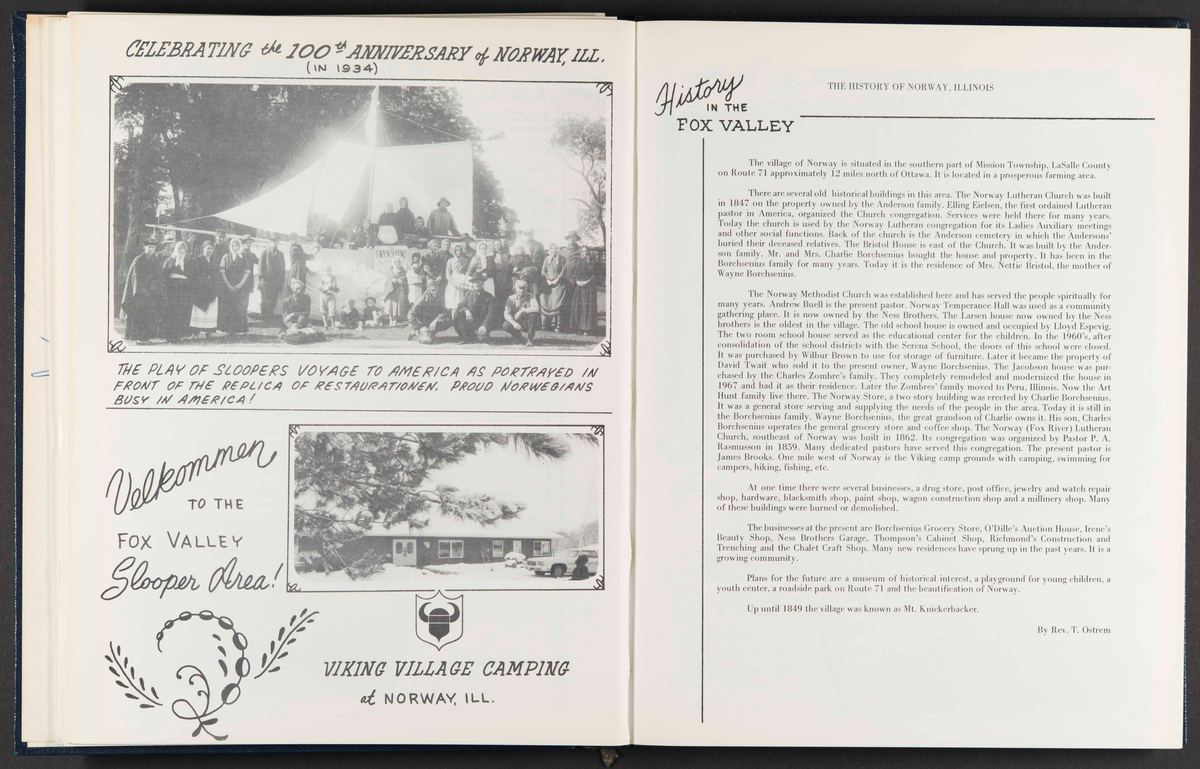 CELEBRATING the 100th ANNIVERSARY of NORWAY, ILL.
(IN 1934)
THE PLAY OF SLOOPERS VOYAGE TO AMERICA AS PORTRAYED IN
FRONT OF THE REPLICA OF RESTAURTIONEN. PROUD NORWEGIANS
BUSY IN AMERICA!
Velkommen
TO THE
FOX VALLEY
Slooper Area!
VIKING VILLAGE CAMPING
at NORWAY, ILL.
History
IN THE
FOX VALLEY
THE HISTORY OF NORWAY, ILLINOIS
The village of Norway is situated in the southern part of Mission Township, LaSalle County
on Route 71 approximately 12 miles north of Ottawa. It is located in a prosperous farming area.
There are several old historical buildings in this area. The Norway Lutheran Church was built
in 1847 on the property owned by the Anderson family. Elling Eielsen, the first ordained Lutheran
pastor in America, organized the Church congregation. Services were held there for many years.
Today the church is used by the Norway Lutheran congregation for its Ladies Auxiliary meetings
and other social functions. Back of the church is the Anderson cemetery in which the Andersons'
buried their deceased relatives. The Bristol House is east of the Church. It was built by the Ander-
son family. Mr. and Mrs. Charlie Borchsenius bought the house and property. It has been in the
Borchsenius family for many years. Today it is the residence of Mrs. Nettie Bristol, the mother of
Wayne Borchsenius.
The Norway Methodist Church was established here and has served the people spiritually for
many years. Andrew Buell is the present pastor. Norway Temperance Hall was used as a community
gathering place. It is now owned by the Ness Brothers. The Larsen house now owned by the Ness
brothers is the oldest in the village. The old school house is owned and occupied by Lloyd Espevig.
The two room school house served as the educational center for the children. In the 1960's, after
consolidation of the school districts with the Serena School, the doors of this school were closed.
It was purchased by Wilbur Brown to use for storage of furniture. Later it became the property of
David Twait who sold it to the present owner, Wayne Borchsenius. The Jacobson house was pur-
chased by the Charles Zombre's family. They completely remodeled and modernized the house in
1967 and had it as their residence. Later the Zombres' family moved to Peru, Illinois. Now the Art
Hunt family live there. The Norway Store, a two story building was erected by Charlie Borchsenius.
It was a general store serving and supplying the needs of the people in the area. Today it is still in
the Borchsenius family. Wayne Borchsenius, the great grandson of Charlie owns it. His son, Charles
Borchsenius operates the general grocery store and coffee shop. The Norway (Fox River) Lutheran
Church, southeast of Norway was built in 1862. Its congregation was organized by Pastor P. A.
Rasmusson in 1859. Many dedicated pastors have served this congregation. The present pastor is
James Brooks. One mile west of Norway is the Viking camp grounds with camping, swimming for
campers, hiking, fishing, etc.
At one time there were several businesses, a drug store, post office, jewelry and watch repair
shop, hardware, blacksmith shop, paint shop, wagon construction shop and a millinery shop. Many
of these buildings were burned or demolished.
The businesses at the present are Borchsenius Grocery Store, O'Dille's Auction House, Irene's
Beauty Shop, Ness Brothers Garage, Thompson's Cabinet Shop, Richmond's Construction and
Trenching and the Chalet Craft Shop. Many new residences have sprung up in the past years. It is a
growing community.
Plans for the future are a museum of historical interest, a playground for young children, a
youth center, a roadside park on Route 71 and the beautification of Norway.
Up until 1849 the village was known as Mt. Knickerbacker.
By Rev. T. Ostrem